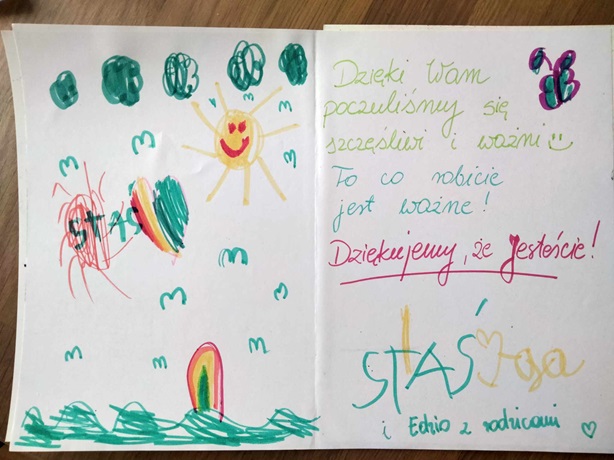 STAŚ
Dzięki Wam
poczuliśmy się
szczęśliwi i ważni
To co robicie
jest ważne!
Dziękujemy, że jesteście!
STAŚ i Iga
i Edzio z rodzicami